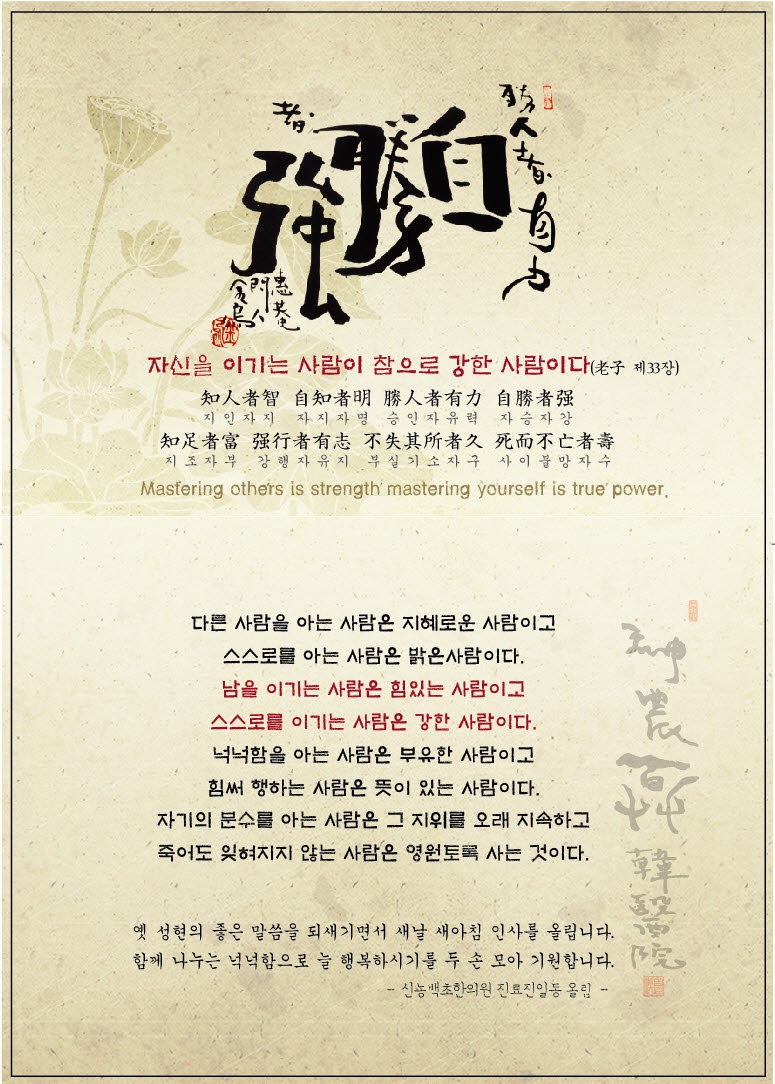 勝人者有力
自勝
者
強
自신을 이기는 사람이 참으로 강한 사람이다(老子 제33장)
知人者智 自知者明 勝人者有力 自勝者强
지인자지 자지자명 승인자유력 자승자강
知足者富 强行者有志 不失其所者久 死而不亡者壽
지조자부 강행자유지 부실기소자구 사이불망자수
Mastering others is strength' mastering yourself is true power.
다른 사람을 아는 사람은 지혜로운 사람이고
스스로를 아는 사람은 밝은사람이다.
남을 이기는 사람은 힘있는 사람이고
스스로를 이기는 사람은 강한 사람이다.
넉넉함을 아는 사람은 부유한 사람이고
힘써 행하는 사람은 뜻이 있는 사람이다.
자기의 분수를 아는 사람은 그 지위를 오래 지속하고
죽어도 잊혀지지 않는 사람은 영원토록 사는 것이다.
神農百草韓醫院
옛 성현의 좋은 말씀을 되새기면서 새날 새아침 인사를 올립니다.
함께 나누는 넉넉함으로 늘 행복하시기를 두 손 모아 기원합니다.
- 신농백초한의원 진료진일동 올림 -